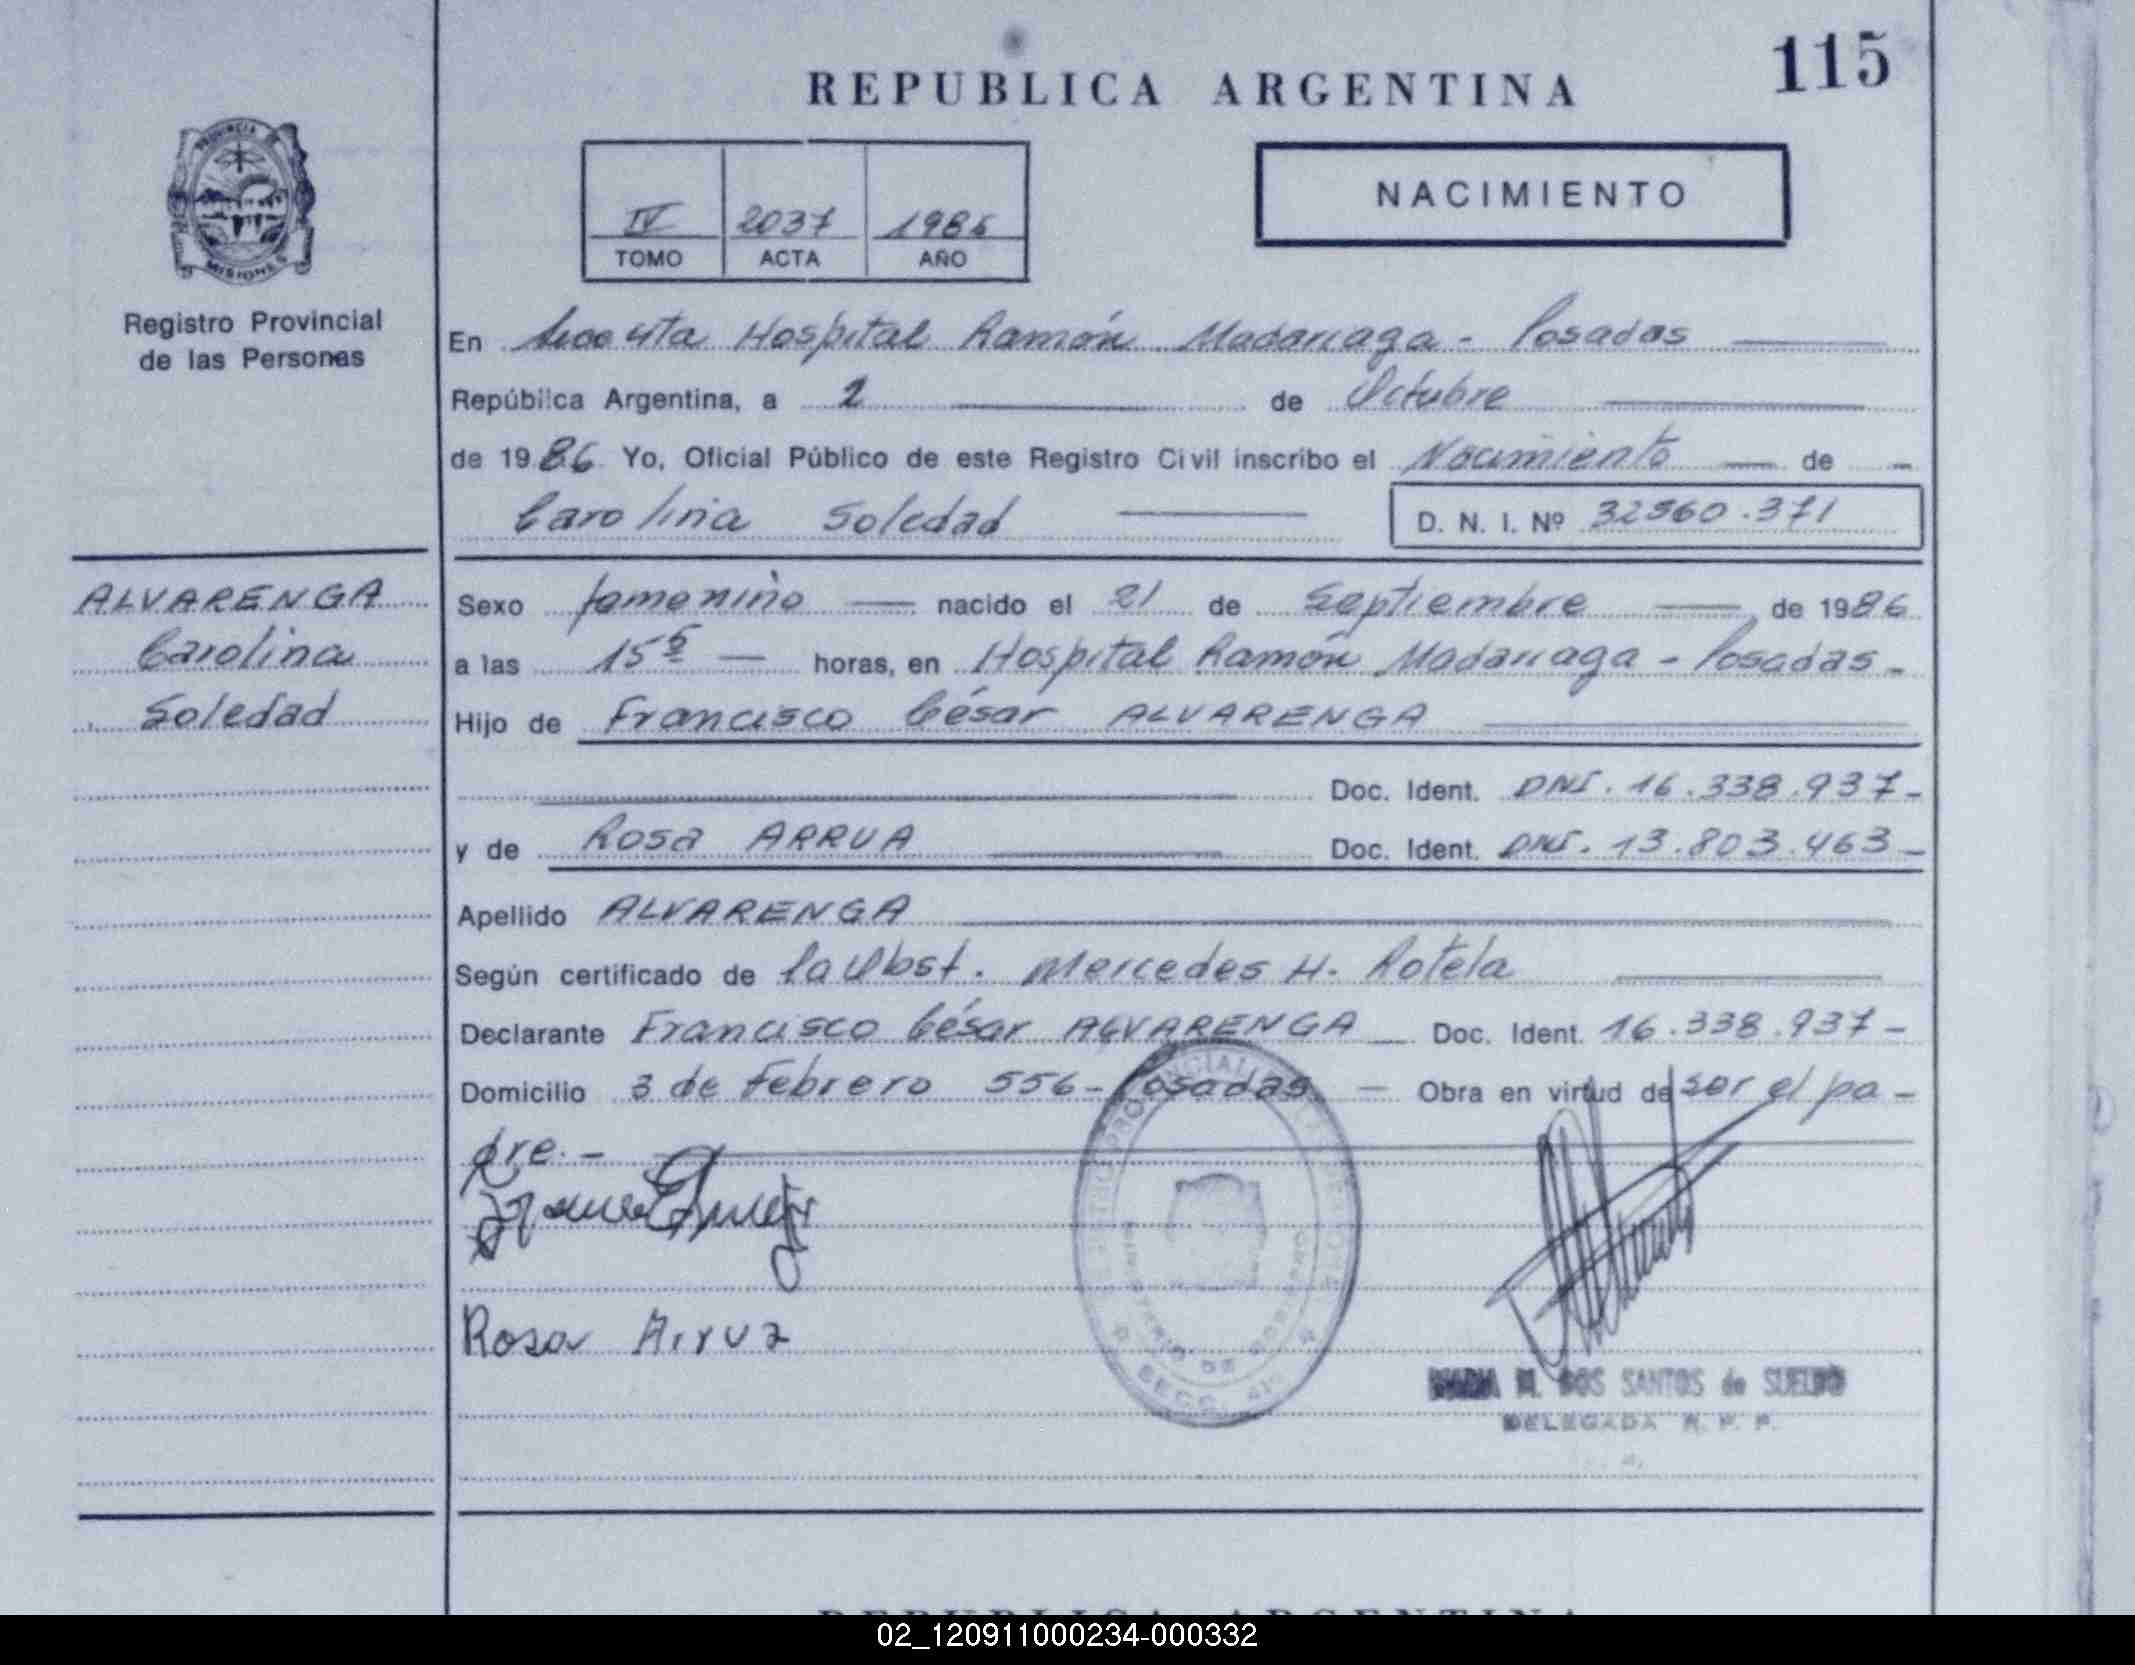 115
REPUBLICA ARGENTINA
PROVINCIA DE
MISIONES
Registro Provincial
de las Personas
IV 2037 1986
TOMO ACTA AÑO
NACIMIENTO
En Secc 4ta Hospital Ramón Madariaga - Posadas
República Argentina, a 2 de Octubre
de 1986 Yo, Oficial Público de este Registro Civil inscribo el Nacimiento de
Carolina Soledad D. N. I. Nº 32560.371
ALVARENGA
Carolina
Soledad
Sexo femenino nacido el 21 de Septiembre de 1986
a las 15 horas, en Hospital Ramón Madariaga - Posadas -
Hijo de Francisco César ALVARENGA
Doc. Ident. DNI. 16.338.937-
y de Rosa ARRUA Doc. Ident. DNI. 13.803.463-
Apellido ALVARENGA
Según certificado de la Obst. Mercedes H. Rotela
Declarante Francisco César ALVARENGA Doc. Ident. 16.338.937-
Domicilio 3 de Febrero 556- Posadas - Obra en virtud de ser el pa-
dre.-
Rosa Arrua
MARIA M. DOS SANTOS de SUELDO
DELEGADA R. P. P.
REPUBLICA ARGENTINA
02_120911000234-000332